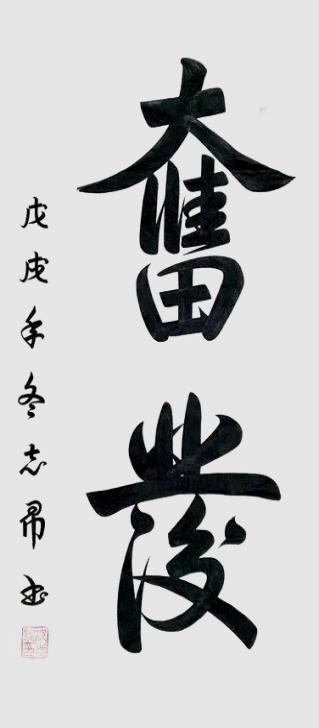 奮發
戊戌年冬志昂书